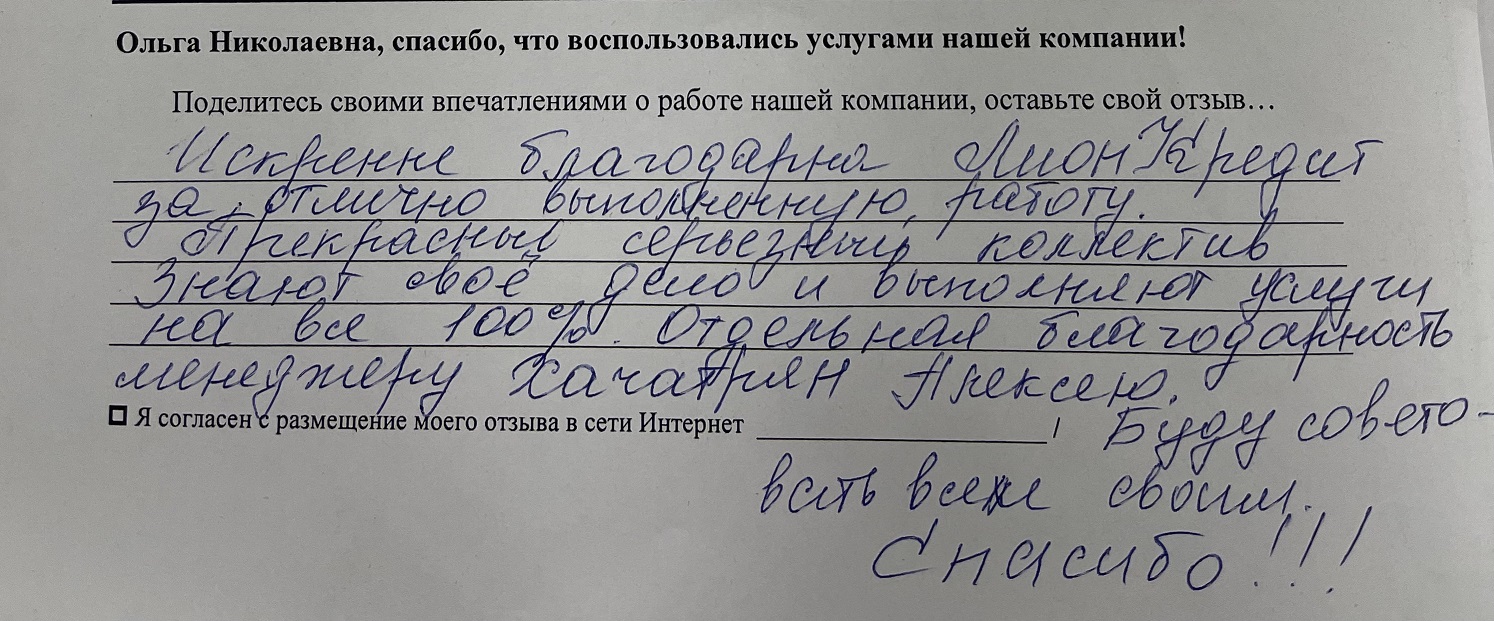 Ольга Николаевна, спасибо, что воспользовались услугами нашей компании!
Поделитесь своими впечатлениями о работе нашей компании, оставьте свой отзыв…
Искренне благодарна Лион Кредит
за отлично выполненную работу.
Прекрасный серьезный коллектив
Знают своё дело и выполняют услуги
на все 100%. Отдельная благодарность
менеджеру Хачатрян Алексею.
Я согласен с размещение моего отзыва в сети Интернет
Буду совето-
вать всем своим.
Спасибо!!!